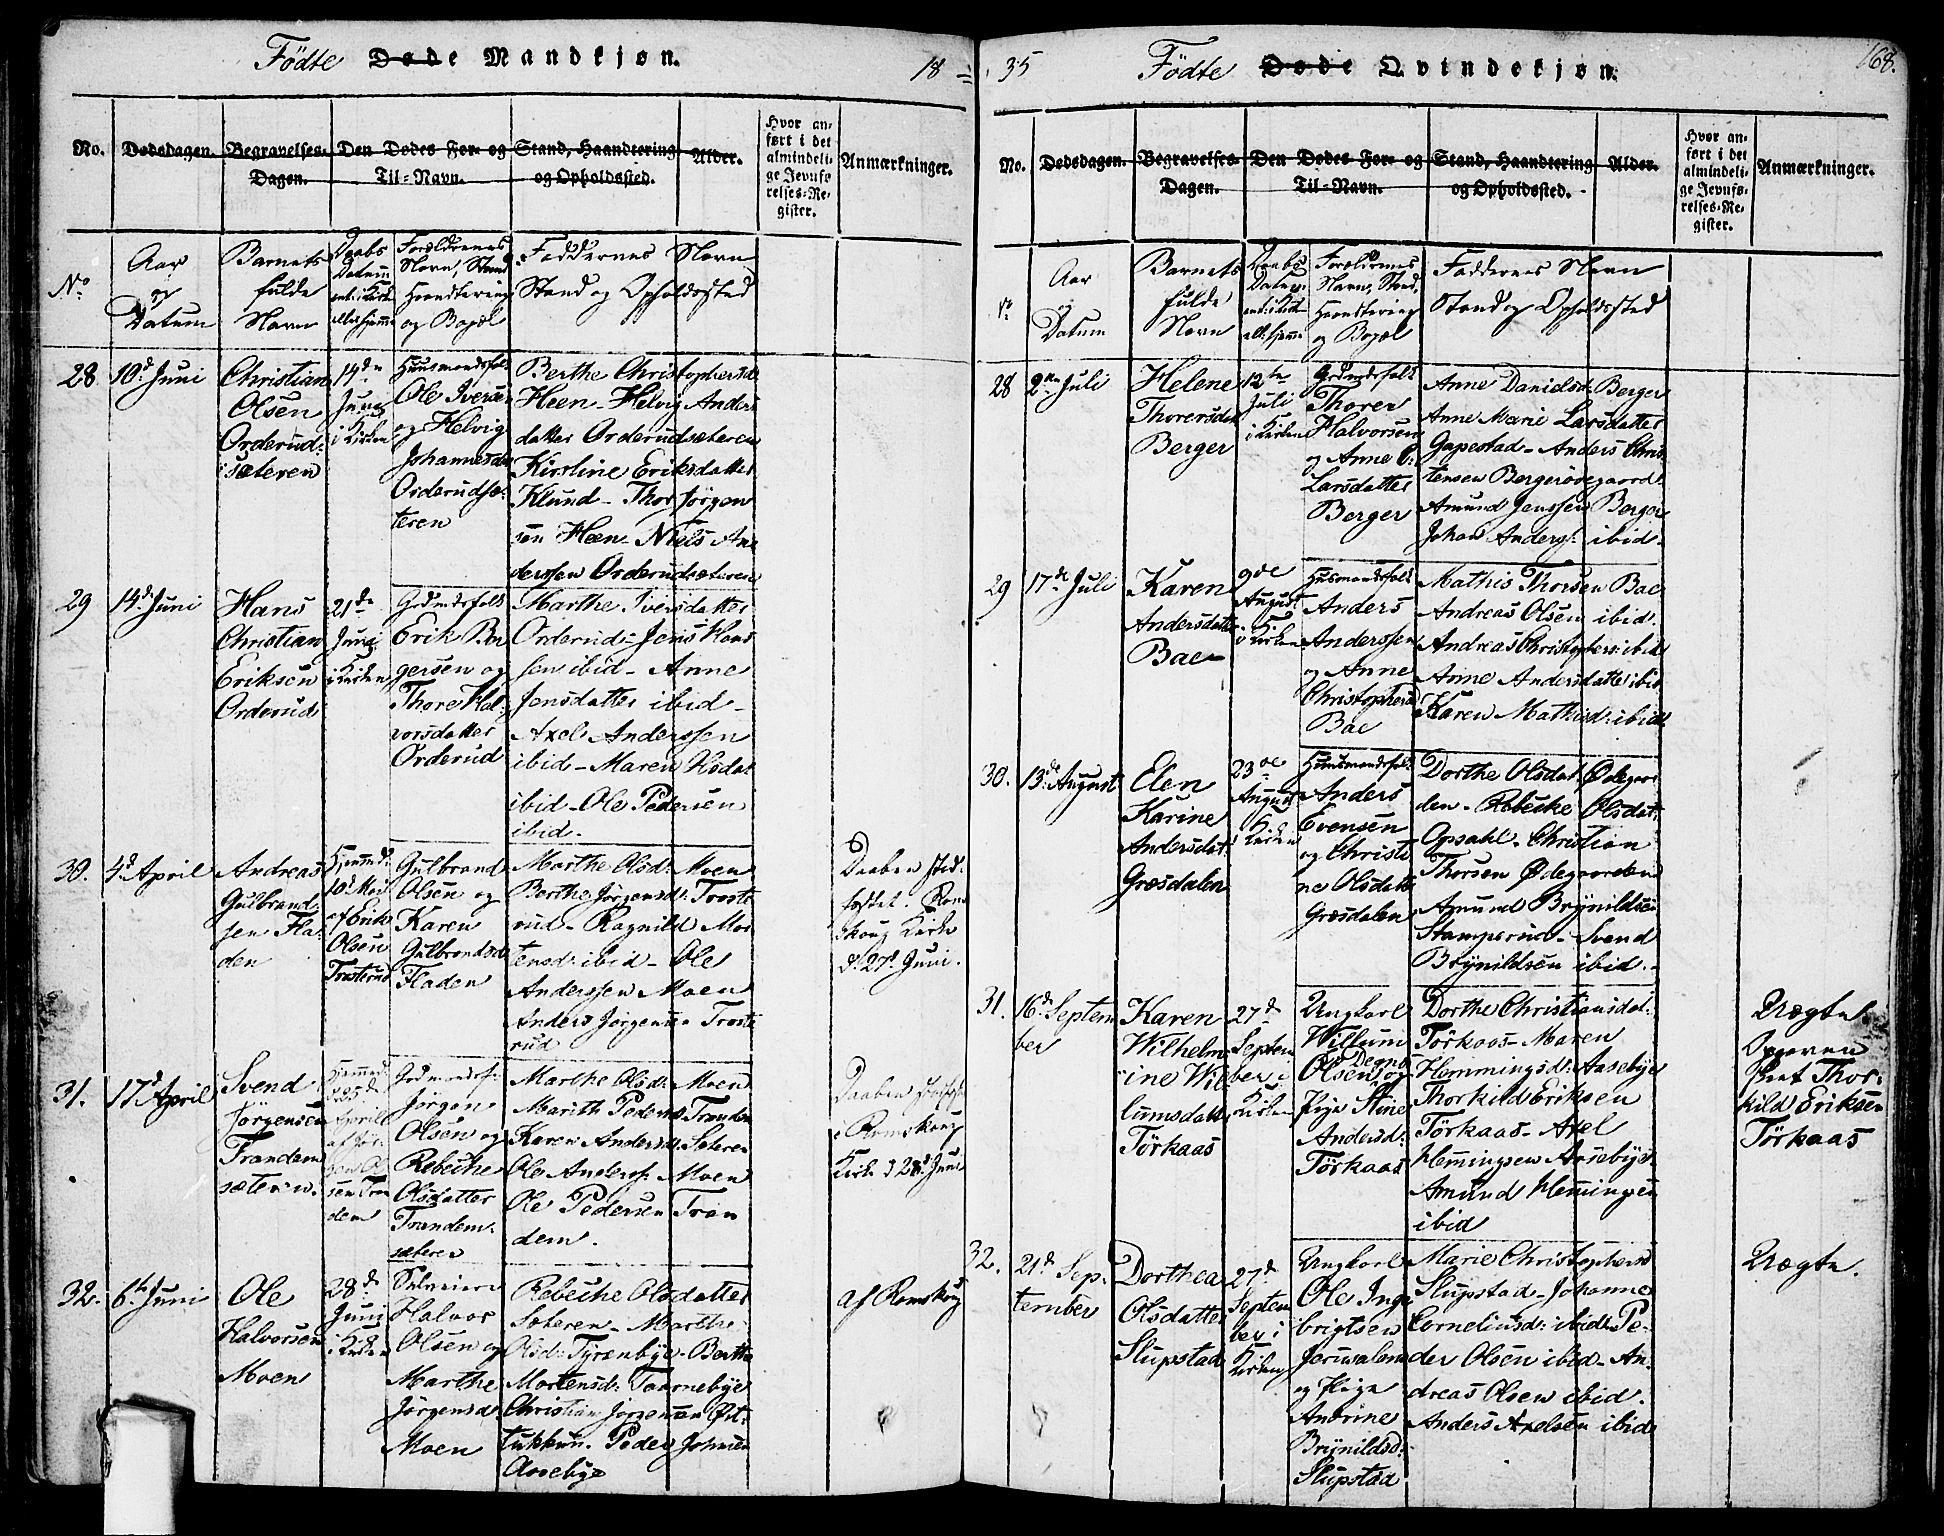 Födte Døde Mandkjøn.
18
No. Dødsdagen. Begravelses-Dagen. Den Dødes For- og Til-Navn. Stand, Haandtering og Opholdssted. Alder. Hvor anført i det almindelige Jevnførelses-Register. Anmærkninger.
No
Aar
og
Datum
Barnets
fulde
Navn
Daabs
Datum
Forældrenes
Navn, Stand
Haandtering
og Bopæl
Faddernes Navn
Stand og Opholdssted
28
10d Juni
Christian
Olsen
Orderud-
sæteren
14de
Juni
i Kirken
Huusmandsfolk
Ole Iversen
og Helvig
Johannesd
Orderudsæ-
teren
Berthe Christophersd
Heen - Helvig Anders
datter Orderudsæteren
Kirstine Eriksdatter
Klund - Thor Jörgen
sen Heen - Niels An
derssen Orderudsæteren
29
14d Juni
Hans
Christian
Eriksen
Orderud
21de
Juni
i Kirken
Grdmdsfolk
Erik Bør
gersen og
Thore Hal-
vorsdatter
Orderud
Marthe Iversdatter
Orderud - Jens Hans
sen ibid - Anne
Jensdatter ibid -
Axel Anderssen
ibid - Maren
ibid - Ole Pedersen
ibid -
30.
4d April
Andreas
Gulbrand-
sen Fla-
den
Hjemmed:
10d Mai
af Erik
Olsen
Trosterud
Gulbrand
Olsen og
Karen
Gulbrandsd
Fladen
Marthe Olsd: Moen
Berthe Jörgensd: Troste
rud - Ragnild Mor
tensd: ibid - Ole
Anderssen Moen
Anders Jörgens: Troste
rud
Daaben stad-
fæstet i Röm
skoug Kirke
d: 27d Juni.
31.
17d April
Svend
Jörgensen
Trandem
sæteren.
Hjemmed:
d 25de
April
af Jör-
gen Ol
sen Tran
dem
Grdmandsf:
Jörgen
Olsen og
Rebecke
Olsdatter
Trandem-
sæteren
Marthe Olsd: Moen
Marith Peders: Trandem
Karen Andersd: Sæteren
Ole Anderss: Moen
Ole Pedersen Tran
dem.
Daaben
i Römskoug
Kirke d 28d Juni
32.
6te Juni
Ole
Halvorsen
Moen
28de
Juni
i Kirken
Selveier
Halvor
Olsen og
Marthe
Jörgensd
Moen
Rebecke Olsdatter
Sæteren - Marthe
Olsd: Tyrenbye - Berthe
Mortensd: Taarnebye
Christian Jörgensen Öst:
tukkun. Peder Johnsen
Aasebye
af Römskoug
35
Födte Døde Qvindekjøn.
168.
No. Dødsdagen. Begravelses-Dagen. Den Dødes For- og Til-Navn. Stand, Haandtering og Opholdssted. Alder. Hvor anført i det almindelige Jevnførelses-Register. Anmærkninger.
No
Aar
og
Datum
Barnets
fulde
Navn
Daabs
Datum
Forældrenes
Navn, Stand,
Haandtering
og Bopæl
Faddernes Navn
Stand og Opholdssted
28
2den Juli
Helene
Thorersdat
Berger
12te
Juli
i Kirken
Grdmdsfolk
Thorer
Halvorsen
og Anne C:
Larsdatter
Berger
Anne Danielsd: Berger
Anne Marie Larsdatter
Gapestad - Anders Chris
tensen Bergerödegaard
Amund Jenssen Berger
Johan Anderss: ibid -
29
17de Juli
Karen
Andersdatter
Bae
9de
August
i Kirken
Husmandsfolk
Anders
Anderssen
og Anne
Christophersd
Bae
Mathis Thorsen Bae
Andreas Olsen ibid.
Andreas Christophers: ibid
Anne Andersdatter ibid
Karen Mathisd: ibid
30.
13de August
Elen
Karine
Andersdat:
Græsdalen
23de
August
i Kirken
Huusmandsfolk
Anders
Evensen
og Christi
ne Olsdatt
Græsdalen
Dorthe Olsdat: Ødegaar
den - Rebecke Olsdat:
Opsahl - Christian
Thorsen Ødegaarden
Amund Brynildsen
Stamperud - Svend
Brynildsen ibid. -
31.
16de Septem
ber
Karen
Wilhelm-
ine Wil-
lumsdatt
Törkaas
27de
Septem
ber i
Kirken
Ungkarl
Willum
Olsen Degnæs
og
Pige Stine
Andersd:
Törkaas
Dorthe Christiansdat:
Törkaas - Maren
Hemmingsd: Aasebye
Thorkild Eriksen
Törkaas - Axel
Hemingsen Aasebye
Amund Hemingsen
ibid
Uægte.
Thor-
kild Eriksen
Törkaas
32.
21de Sep-
tember
Dorthea
Olsdatter
Slupstad
27de
Septem
ber i
Kirken
Ungkarl
Ole Inge
brigtsen
Jerusalem
og Pige
Andrine
Brynildsd:
Slupstad
Marie Christophersd
Slupstad - Johanne
Corneliusd: ibid - Pe-
der Olsen ibid - An-
dreas Olsen ibid.
Anders Axelsen ibid
Uægte.